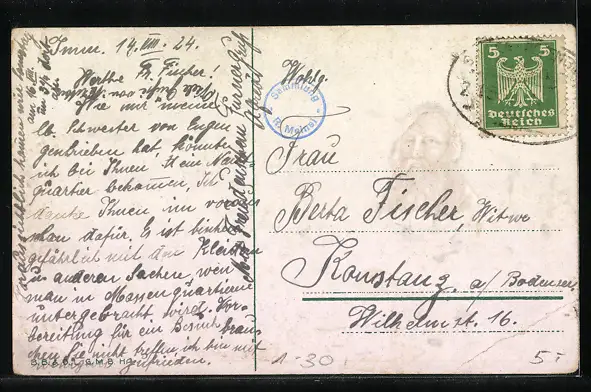 Imm. 14.VIII.24.
Werthe Fr. Fischer!
Wie mir meine
lb. Schwester von Eugen
geschrieben hat könnte
ich bei Ihnen ein Nacht
quartier bekommen, Ich
danke Ihnen im voraus
schon dafür. Es ist bischen
gefährlich mit den Kleidern
u. anderen Sachen, wen
man in Massenquartieren
untergebracht wird. Vor-
bereitung für ein Besuch brau
chen Sie nicht treffen, ich bin mit
zufrieden.
Mit freundlichem Turnergruß
Wohlg.
Frau
Berta Fischer, Witwe
Konstanz a/Bodensee
Wilhelmstr. 16.
Sammlung
R. Meinel
5 5
Deutsches
Reich
G.M.B.H.
1-30
5.-